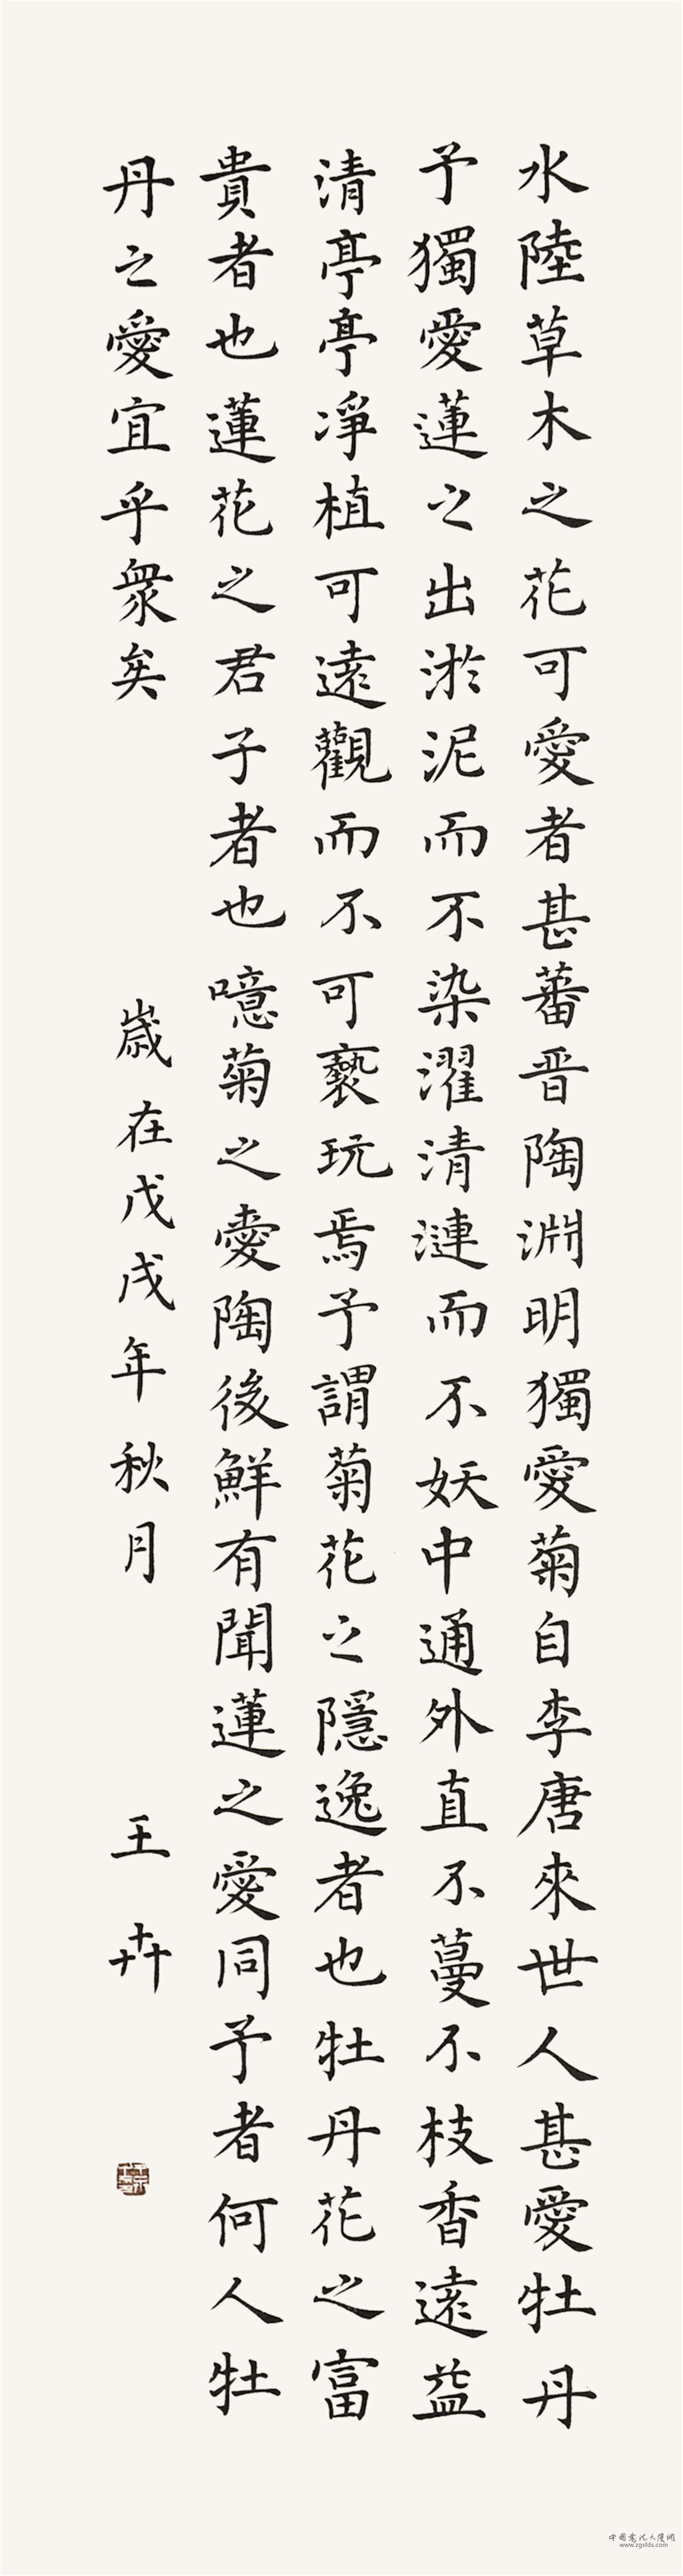 水陸草木之花可愛者甚蕃晋陶淵明獨愛菊自李唐來世人甚愛牡丹
予獨愛蓮之出淤泥而不染濯清漣而不妖中通外直不蔓不枝香遠益
清亭亭凈植可遠觀而不可褻玩焉予謂菊花之隱逸者也牡丹花之富
貴者也蓮花之君子者也噫菊之愛陶後鮮有聞蓮之愛同予者何人牡
丹之愛宜乎衆矣
歲在戊戌年秋月
王卉
中国書法大厦網
www.zgsfds.com